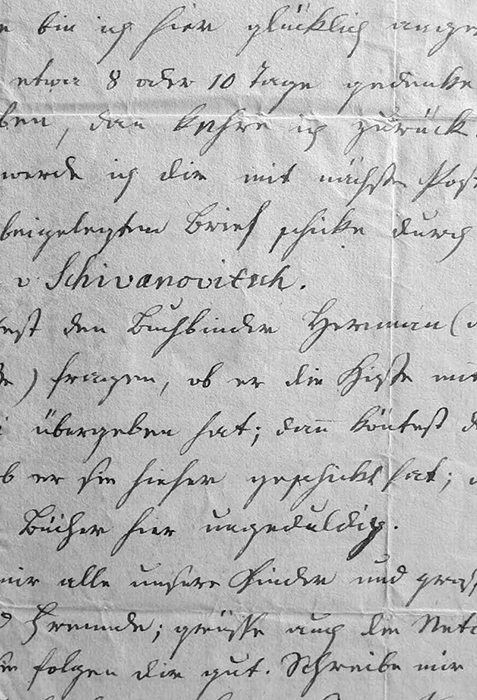 bin ich hier glücklich ange
etwa 8 oder 10 Tage gedenke
ben, dan kehre ich zurück.
werde ich dir mit nächster Post
beigelegten Brief schicke durch
v Schivanovitsch.
est den Buchbinder Herman (
) fragen, ob er die Kiste mit
übergeben hat; dan̄ köntest d
b er sie hieher geschickt hat;
Bücher hier ungeduldig.
mir alle unsere Kinder und grüss
d Freunde; grüsse auch die Net
folgen dir gut. Schreibe mir